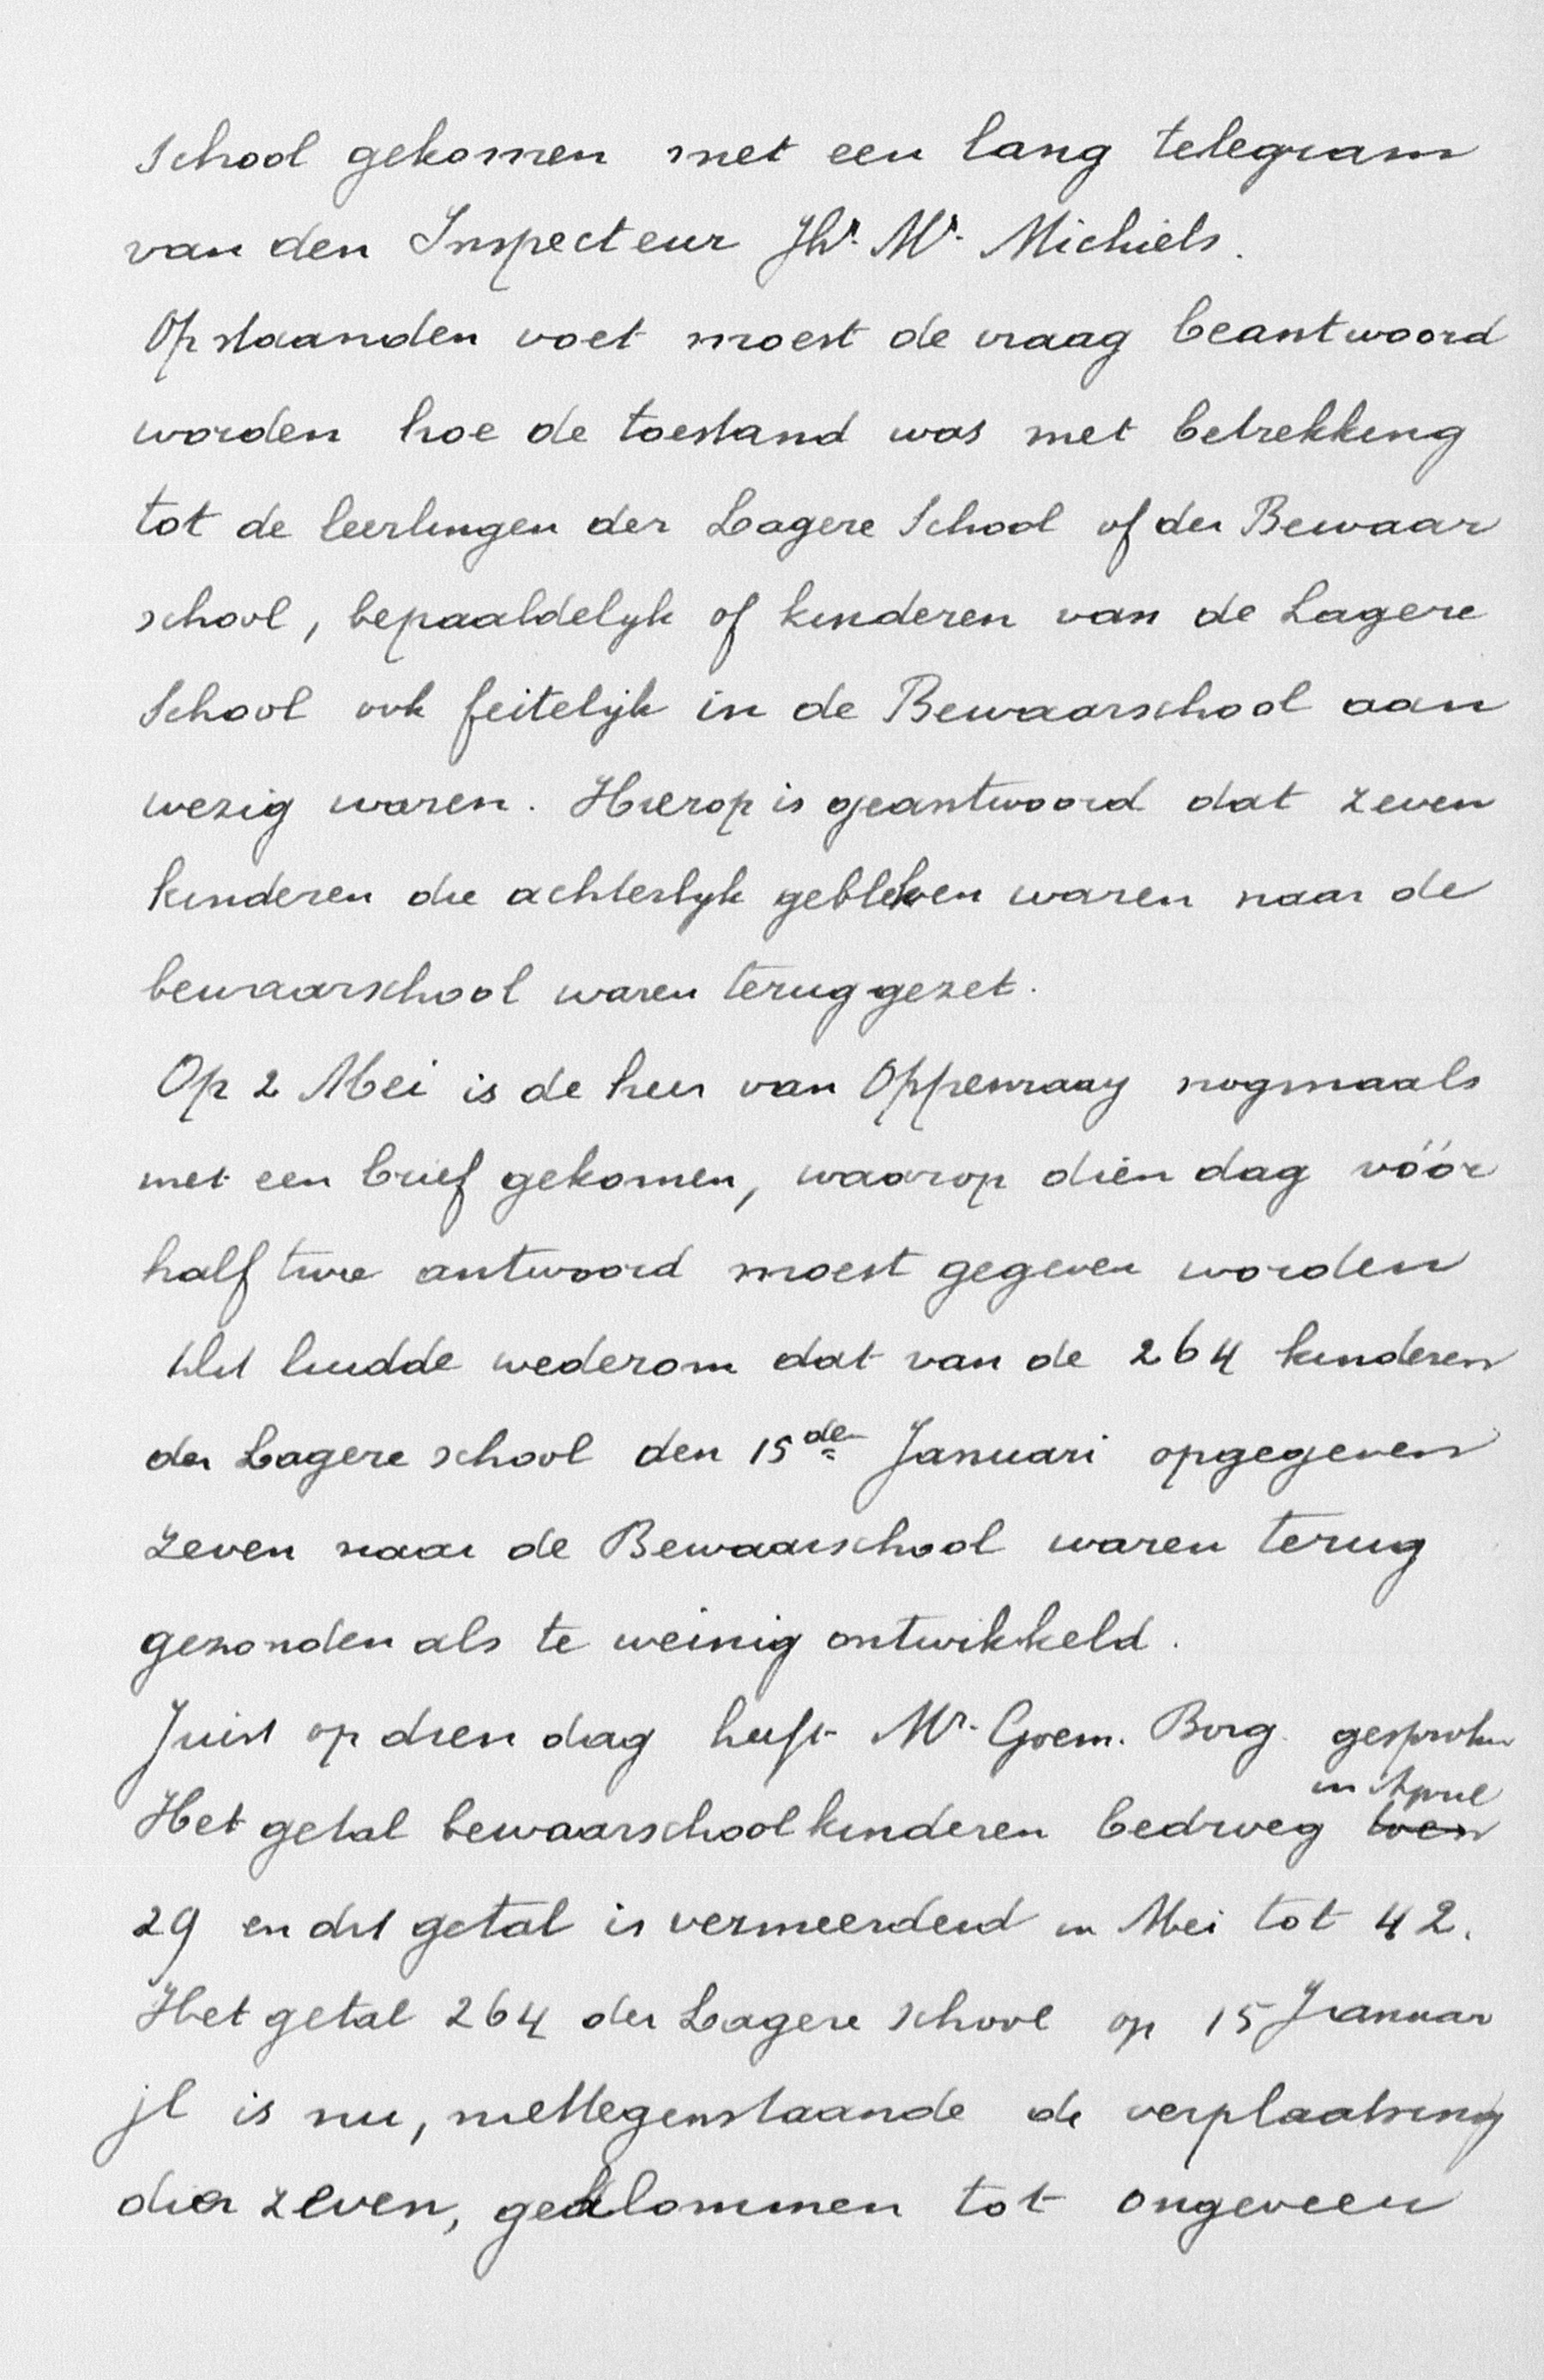 School gekomen met een lang telegram
van den Inspecteur Jhr. Mr. Michiels.
Op staanden voet moest de vraag beantwoord
worden hoe de toestand was met betrekking
tot de leerlingen der Lagere School of der Bewaar
school, bepaaldelijk of kinderen van de Lagere
School ook feitelijk in de Bewaarschool aan
wezig waren. Hierop is geantwoord dat zeven
kinderen die achterlijk gebleken waren naar de
bewaarschool waren teruggezet.
Op 2 Mei is de heer van Oppenraay nogmaals
met een brief gekomen, waarop dien dag vóór
half twee antwoord moest gegeven worden
luidde wederom dat van de 264 kinderen
der Lagere school den 15de Januari opgegeven
zeven naar de Bewaarschool waren terug
gezonden als te weinig ontwikkeld.
Juist op dien dag heeft Mr. Goem. Borg. gesproken
in April
Het getal bewaarschoolkinderen bedroeg toen
29 en dit getal is vermeerderd in Mei tot 42.
Het getal 264 der Lagere school op 15 Januar
jl is nu, niettegenstaande de verplaatsing
dier zeven, geklommen tot ongeveer